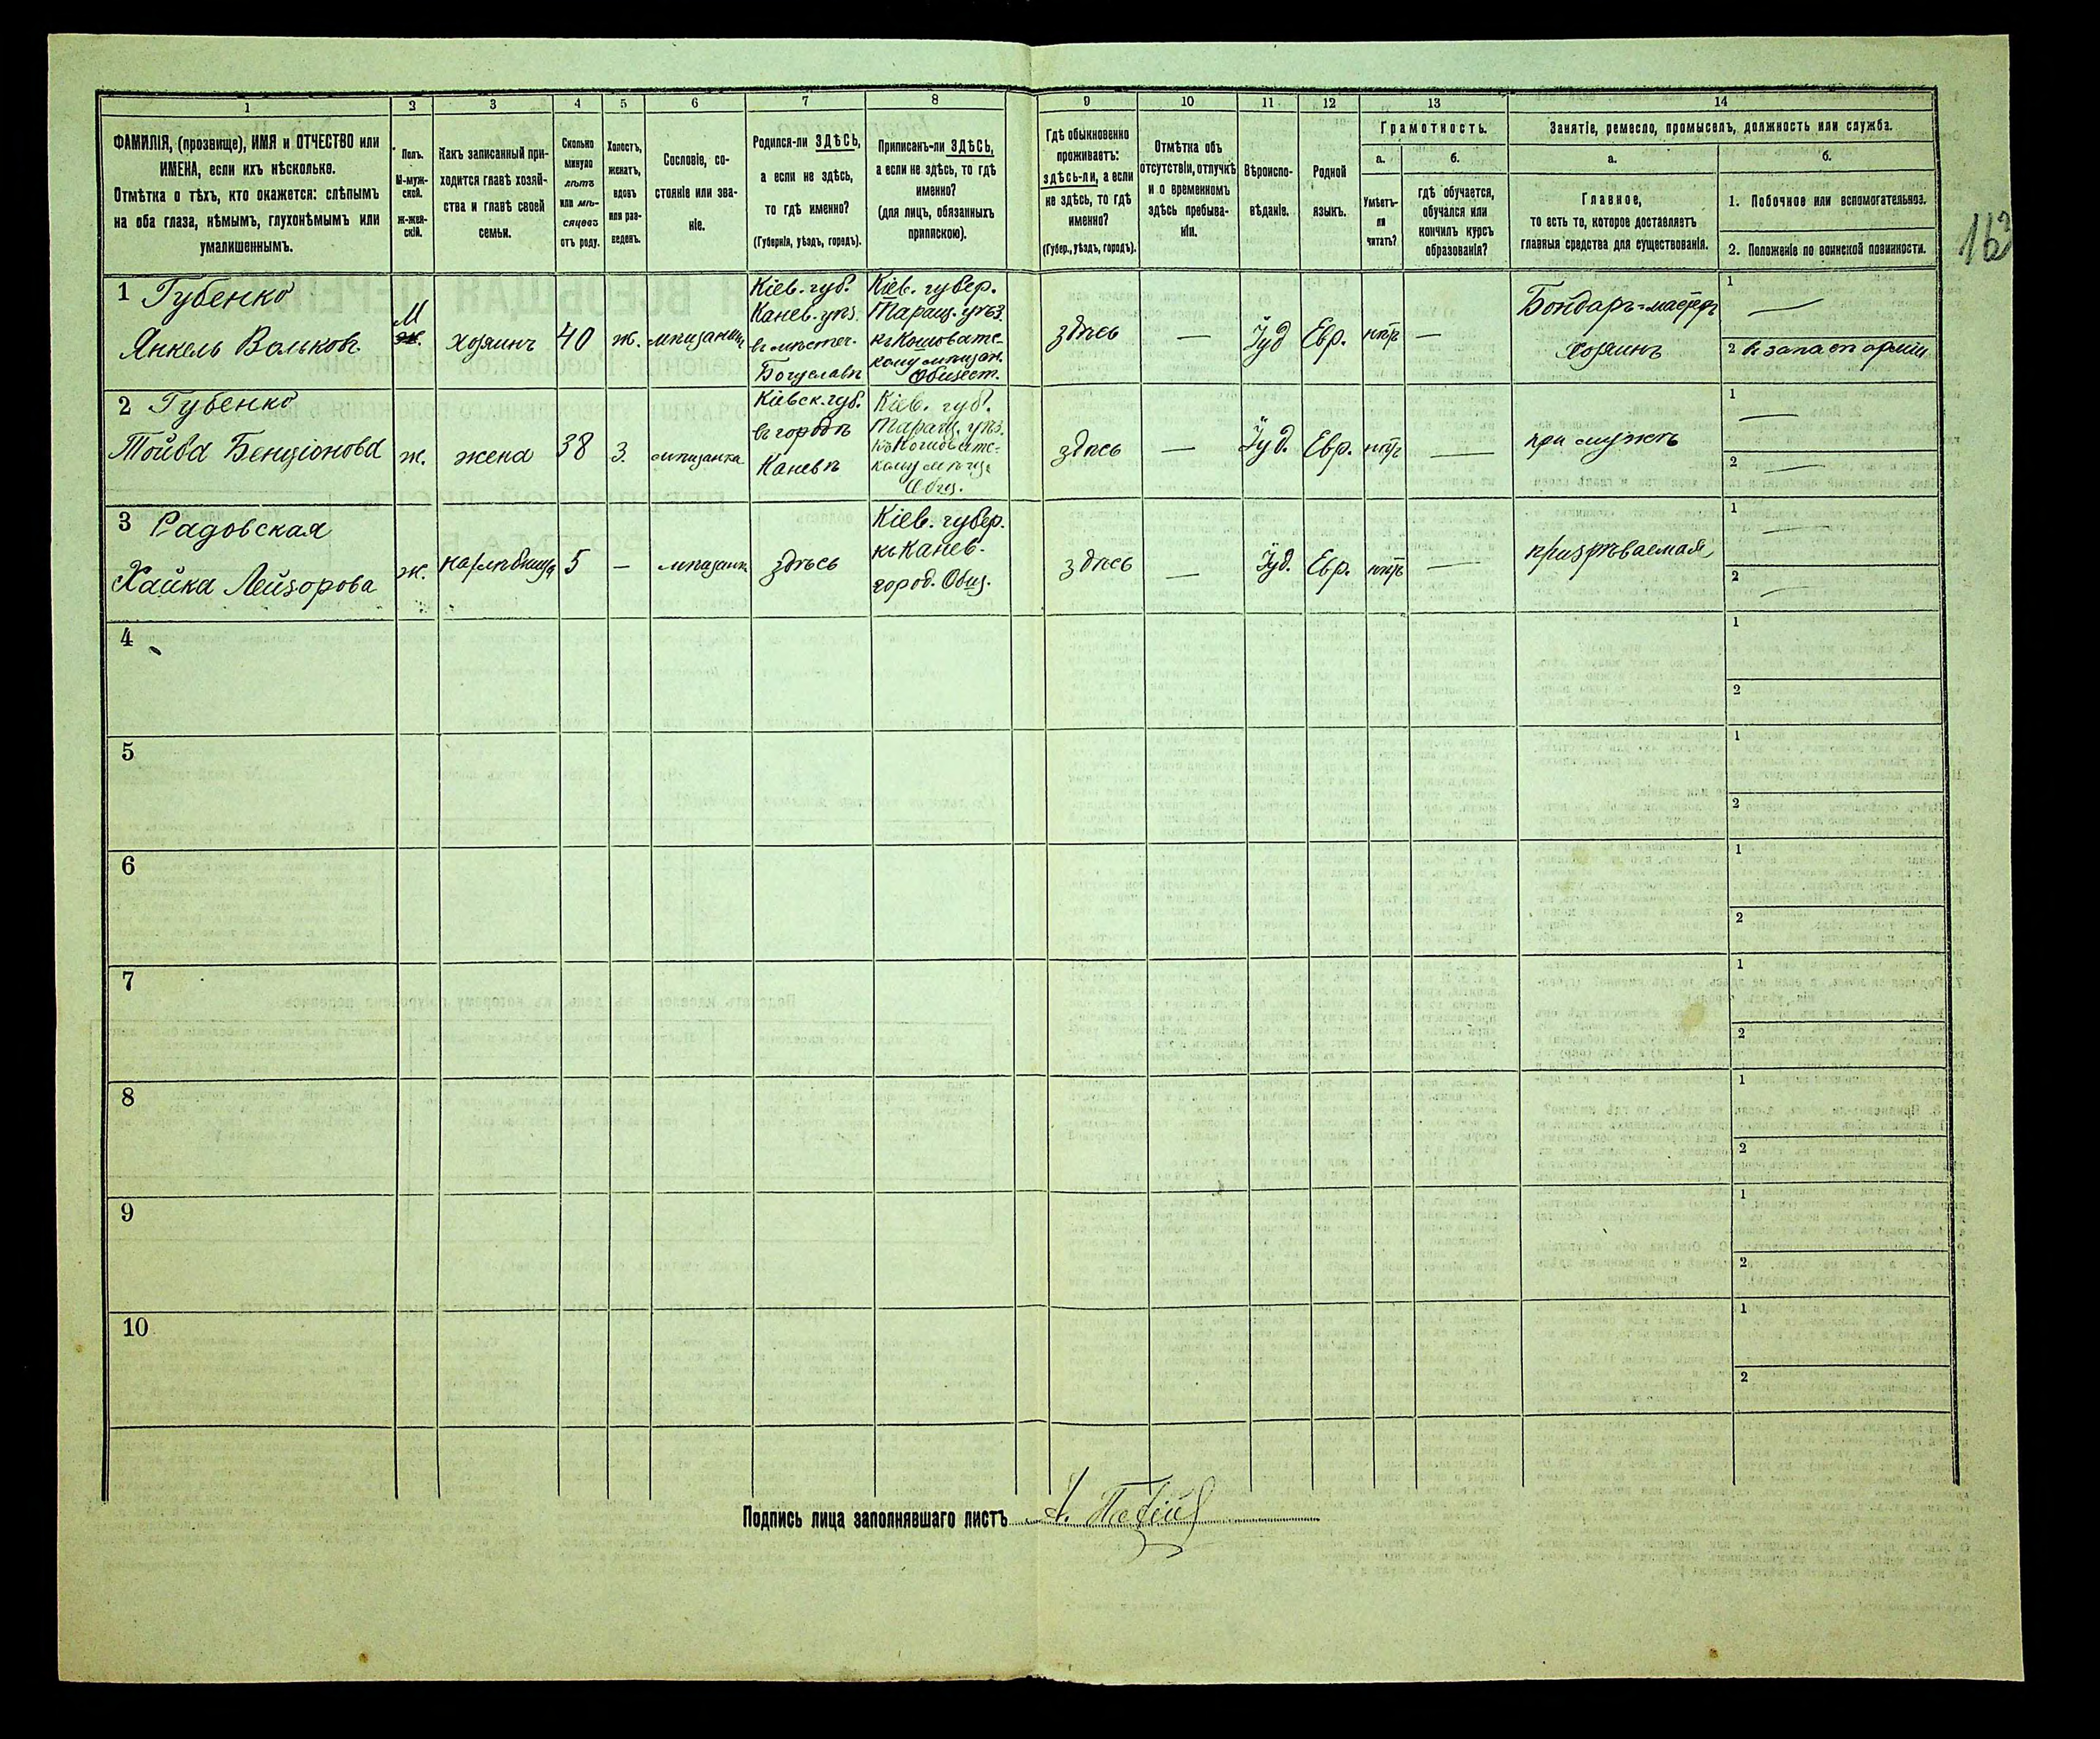 1 2 3 4 5 6 7 8 9 10 11 12 13 14
ФАМИЛІЯ, (прозвище), ИМЯ и ОТЧЕСТВО или
ИМЕНА, если ихъ нѣсколько.
Отмѣтка о тѣхъ, кто окажется: слѣпымъ
на оба глаза, нѣмымъ, глухонѣмымъ или
умалишеннымъ.
Полъ.
М-муж-
ской.
ж-жен-
скій.
Какъ записанный при-
ходится главѣ хозяй-
ства и главѣ своей
семьи.
Сколько
минуло
лѣтъ
или мѣ-
сяцевъ
отъ роду.
Холостъ,
женатъ,
вдовъ
или раз-
веденъ.
Сословіе, со-
стояніе или зва-
ніе.
Родился-ли ЗДѢСЬ,
а если не здѣсь,
то гдѣ именно?
(Губернія, уѣздъ, городъ).
Приписанъ-ли ЗДѢСЬ,
а если не здѣсь, то гдѣ
именно?
(для лицъ, обязанныхъ
припискою).
Гдѣ обыкновенно
проживаетъ:
здѣсь-ли, а если
не здѣсь, то гдѣ
именно?
(Губер., уѣздъ, городъ).
Отмѣтка объ
отсутствіи, отлучкѣ
и о временномъ
здѣсь пребыва-
ніи.
Вѣроиспо-
вѣданіе.
Родной
языкъ.
Грамотность.
а.
Умѣетъ-
ли
читать?
б.
гдѣ обучается,
обучался или
кончилъ курсъ
образованія?
Занятіе, ремесло, промыселъ, должность или служба.
а.
Главное,
то есть то, которое доставляетъ
главныя средства для существованія.
б.
1. Побочное или вспомогательное.
2. Положеніе по воинской повинности.
163
1 Губенко
Янкель Вольков.
М
ж.
хозяинъ
40
ж.
мѣщанинъ
Кіев. губ.
Канев. уѣз.
въ мѣстеч.
Богуславѣ
Кіев. губер.
Таращ. уѣз.
къ Кошоватс-
кому мѣщан.
Общест.
здѣсь
—
Іуд
Евр.
нѣтъ
—
Бондарь-мастеръ
хозяинъ
1 —
2 въ запасѣ арміи
2 Губенко
Тойба Бенціонова
ж.
жена
38
З.
мѣщанка
Кіевск. губ.
въ городѣ
Каневѣ
Кіев. губ.
Таращ. уѣз.
къ Кошоватс-
кому мѣщ.
Общ.
здѣсь
—
Іуд.
Евр.
нѣтъ
—
при мужѣ
1 —
2 —
3 Радовская
Хайка Лейзорова
ж.
нахлѣбница
5
—
мѣщанка
здѣсь
Кіев. губер.
къ Канев.
город. Общ.
здѣсь
—
Іуд.
Евр.
нѣтъ
—
призрѣваемая
1 —
2 —
4
1
2
5
1
2
6
1
2
7
1
2
8
1
2
9
1
2
10
1
2
Подпись лица заполнявшаго листъ